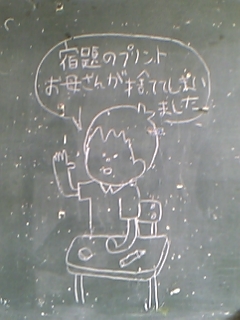 宿題のプリント
お母さんが捨ててしまい
ました